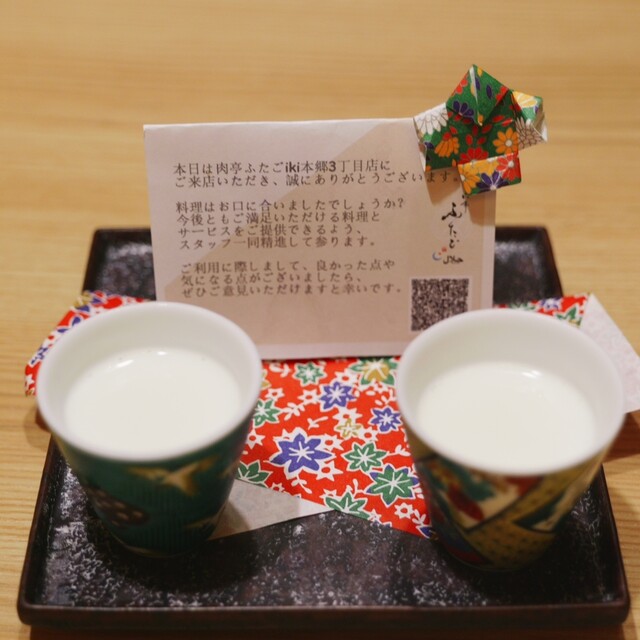 本日は肉亭ふたごiki本郷3丁目店に
ご来店いただき、誠にありがとうございます。
料理はお口に合いましたでしょうか?
今後ともご満足いただける料理と
サービスをご提供できるよう、
スタッフ一同精進して参ります。
ご利用に際しまして、良かった点や
気になる点がございましたら、
ぜひご意見いただけますと幸いです。
ふたご